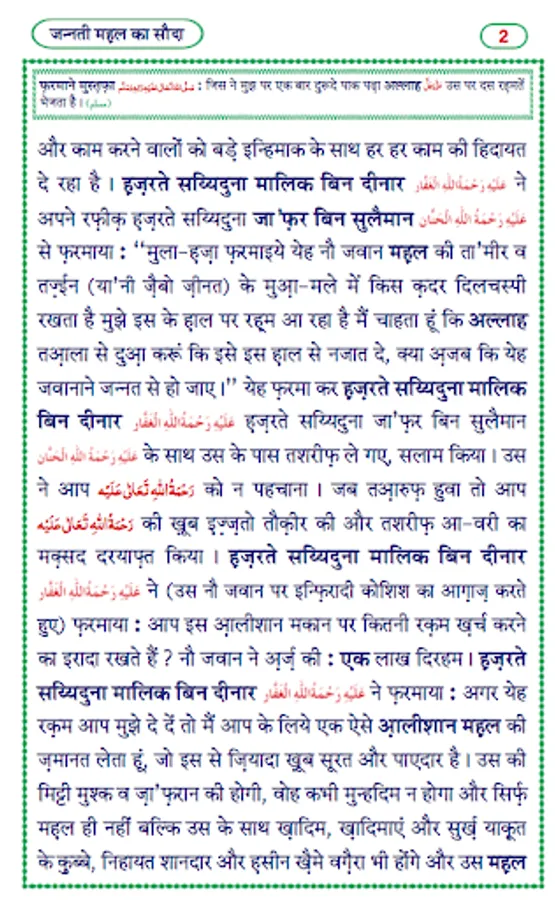 जन्नती महल का सौदा
2
फ़रमाने मुस्त़फ़ा صَلَّى اللهُ تَعَالٰى عَلَيْهِ وَاٰلِهٖ وَسَلَّم : जिस ने मुझ पर एक बार दुरूदे पाक पढ़ा अल्लाह عَزَّوَجَلَّ उस पर दस रह़मतें
भेजता है । (مسلم)
और काम करने वालों को बड़े इन्हिमाक के साथ हर हर काम की हिदायत
दे रहा है । ह़ज़रते सय्यिदुना मालिक बिन दीनार عَلَيْهِ رَحْمَةُ اللهِ الْغَفَّار ने
अपने रफ़ीक़ ह़ज़रते सय्यिदुना जा'फ़र बिन सुलैमान عَلَيْهِ رَحْمَةُ اللهِ الْحَنَّان
से फ़रमाया : "मुला-ह़ज़ा फ़रमाइये येह नौ जवान महल की ता'मीर व
तज़्ईन (या'नी ज़ैबो ज़ीनत) के मुआ़-मले में किस क़दर दिलचस्पी
रखता है मुझे इस के ह़ाल पर रह़्म आ रहा है मैं चाहता हूं कि अल्लाह
तआ़ला से दुआ़ करूं कि इसे इस ह़ाल से नजात दे, क्या अ़जब कि येह
जवानाने जन्नत से हो जाए ।" येह फ़रमा कर ह़ज़रते सय्यिदुना मालिक
बिन दीनार عَلَيْهِ رَحْمَةُ اللهِ الْغَفَّار ह़ज़रते सय्यिदुना जा'फ़र बिन सुलैमान
عَلَيْهِ رَحْمَةُ اللهِ الْحَنَّان के साथ उस के पास तशरीफ़ ले गए, सलाम किया । उस
ने आप رَحْمَةُ اللهِ تَعَالٰى عَلَيْه को न पहचाना । जब तआ़रुफ़ हुवा तो आप
رَحْمَةُ اللهِ تَعَالٰى عَلَيْه की ख़ूब इ़ज़्ज़तो तौक़ीर की और तशरीफ़ आ-वरी का
मक़्सद दरयाफ़्त किया । ह़ज़रते सय्यिदुना मालिक बिन दीनार
عَلَيْهِ رَحْمَةُ اللهِ الْغَفَّار ने (उस नौ जवान पर इन्फ़िरादी कोशिश का आग़ाज़ करते
हुए) फ़रमाया : आप इस आ़लीशान मकान पर कितनी रक़म ख़र्च करने
का इरादा रखते हैं ? नौ जवान ने अ़र्ज़ की : एक लाख दिरहम । ह़ज़रते
सय्यिदुना मालिक बिन दीनार عَلَيْهِ رَحْمَةُ اللهِ الْغَفَّار ने फ़रमाया : अगर येह
रक़म आप मुझे दे दें तो मैं आप के लिये एक ऐसे आ़लीशान महल की
ज़मानत लेता हूं, जो इस से ज़ियादा ख़ूब सूरत और पाएदार है । उस की
मिट्टी मुश्क व ज़ा'फ़रान की होगी, वोह कभी मुन्हदिम न होगा और सिर्फ़
महल ही नहीं बल्कि उस के साथ ख़ादिम, ख़ादिमाएं और सुर्ख़ याक़ूत
के क़ुब्बे, निहायत शानदार और ह़सीन ख़ैमे वग़ैरा भी होंगे और उस महल